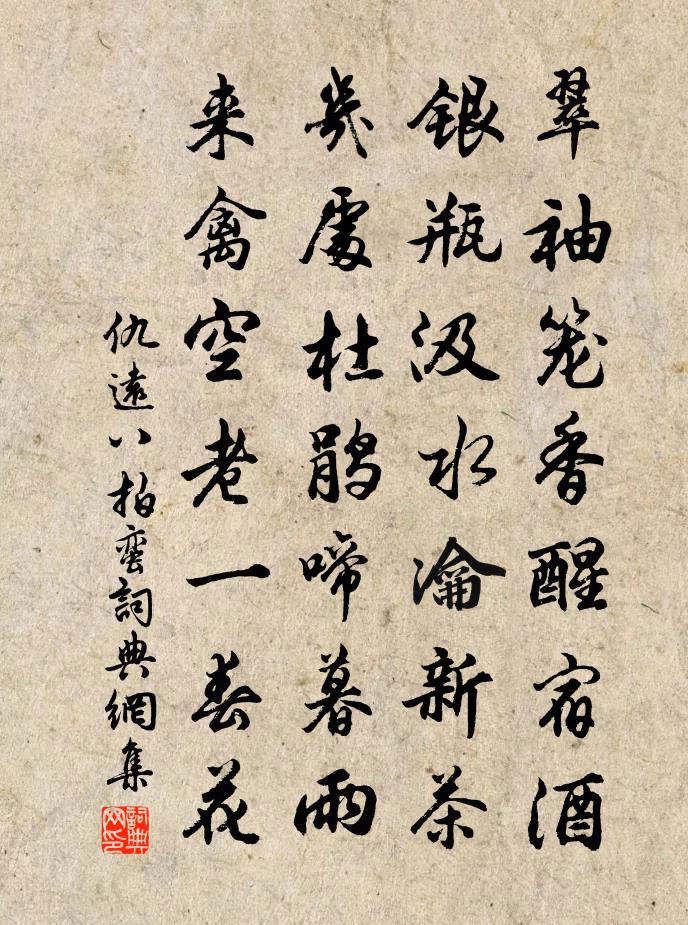 翠袖笼香醒宿酒
银瓶汲水瀹新茶
几处杜鹃啼暮雨
来禽空老一春花
仇远八拍蛮詞典網集
詞典网印